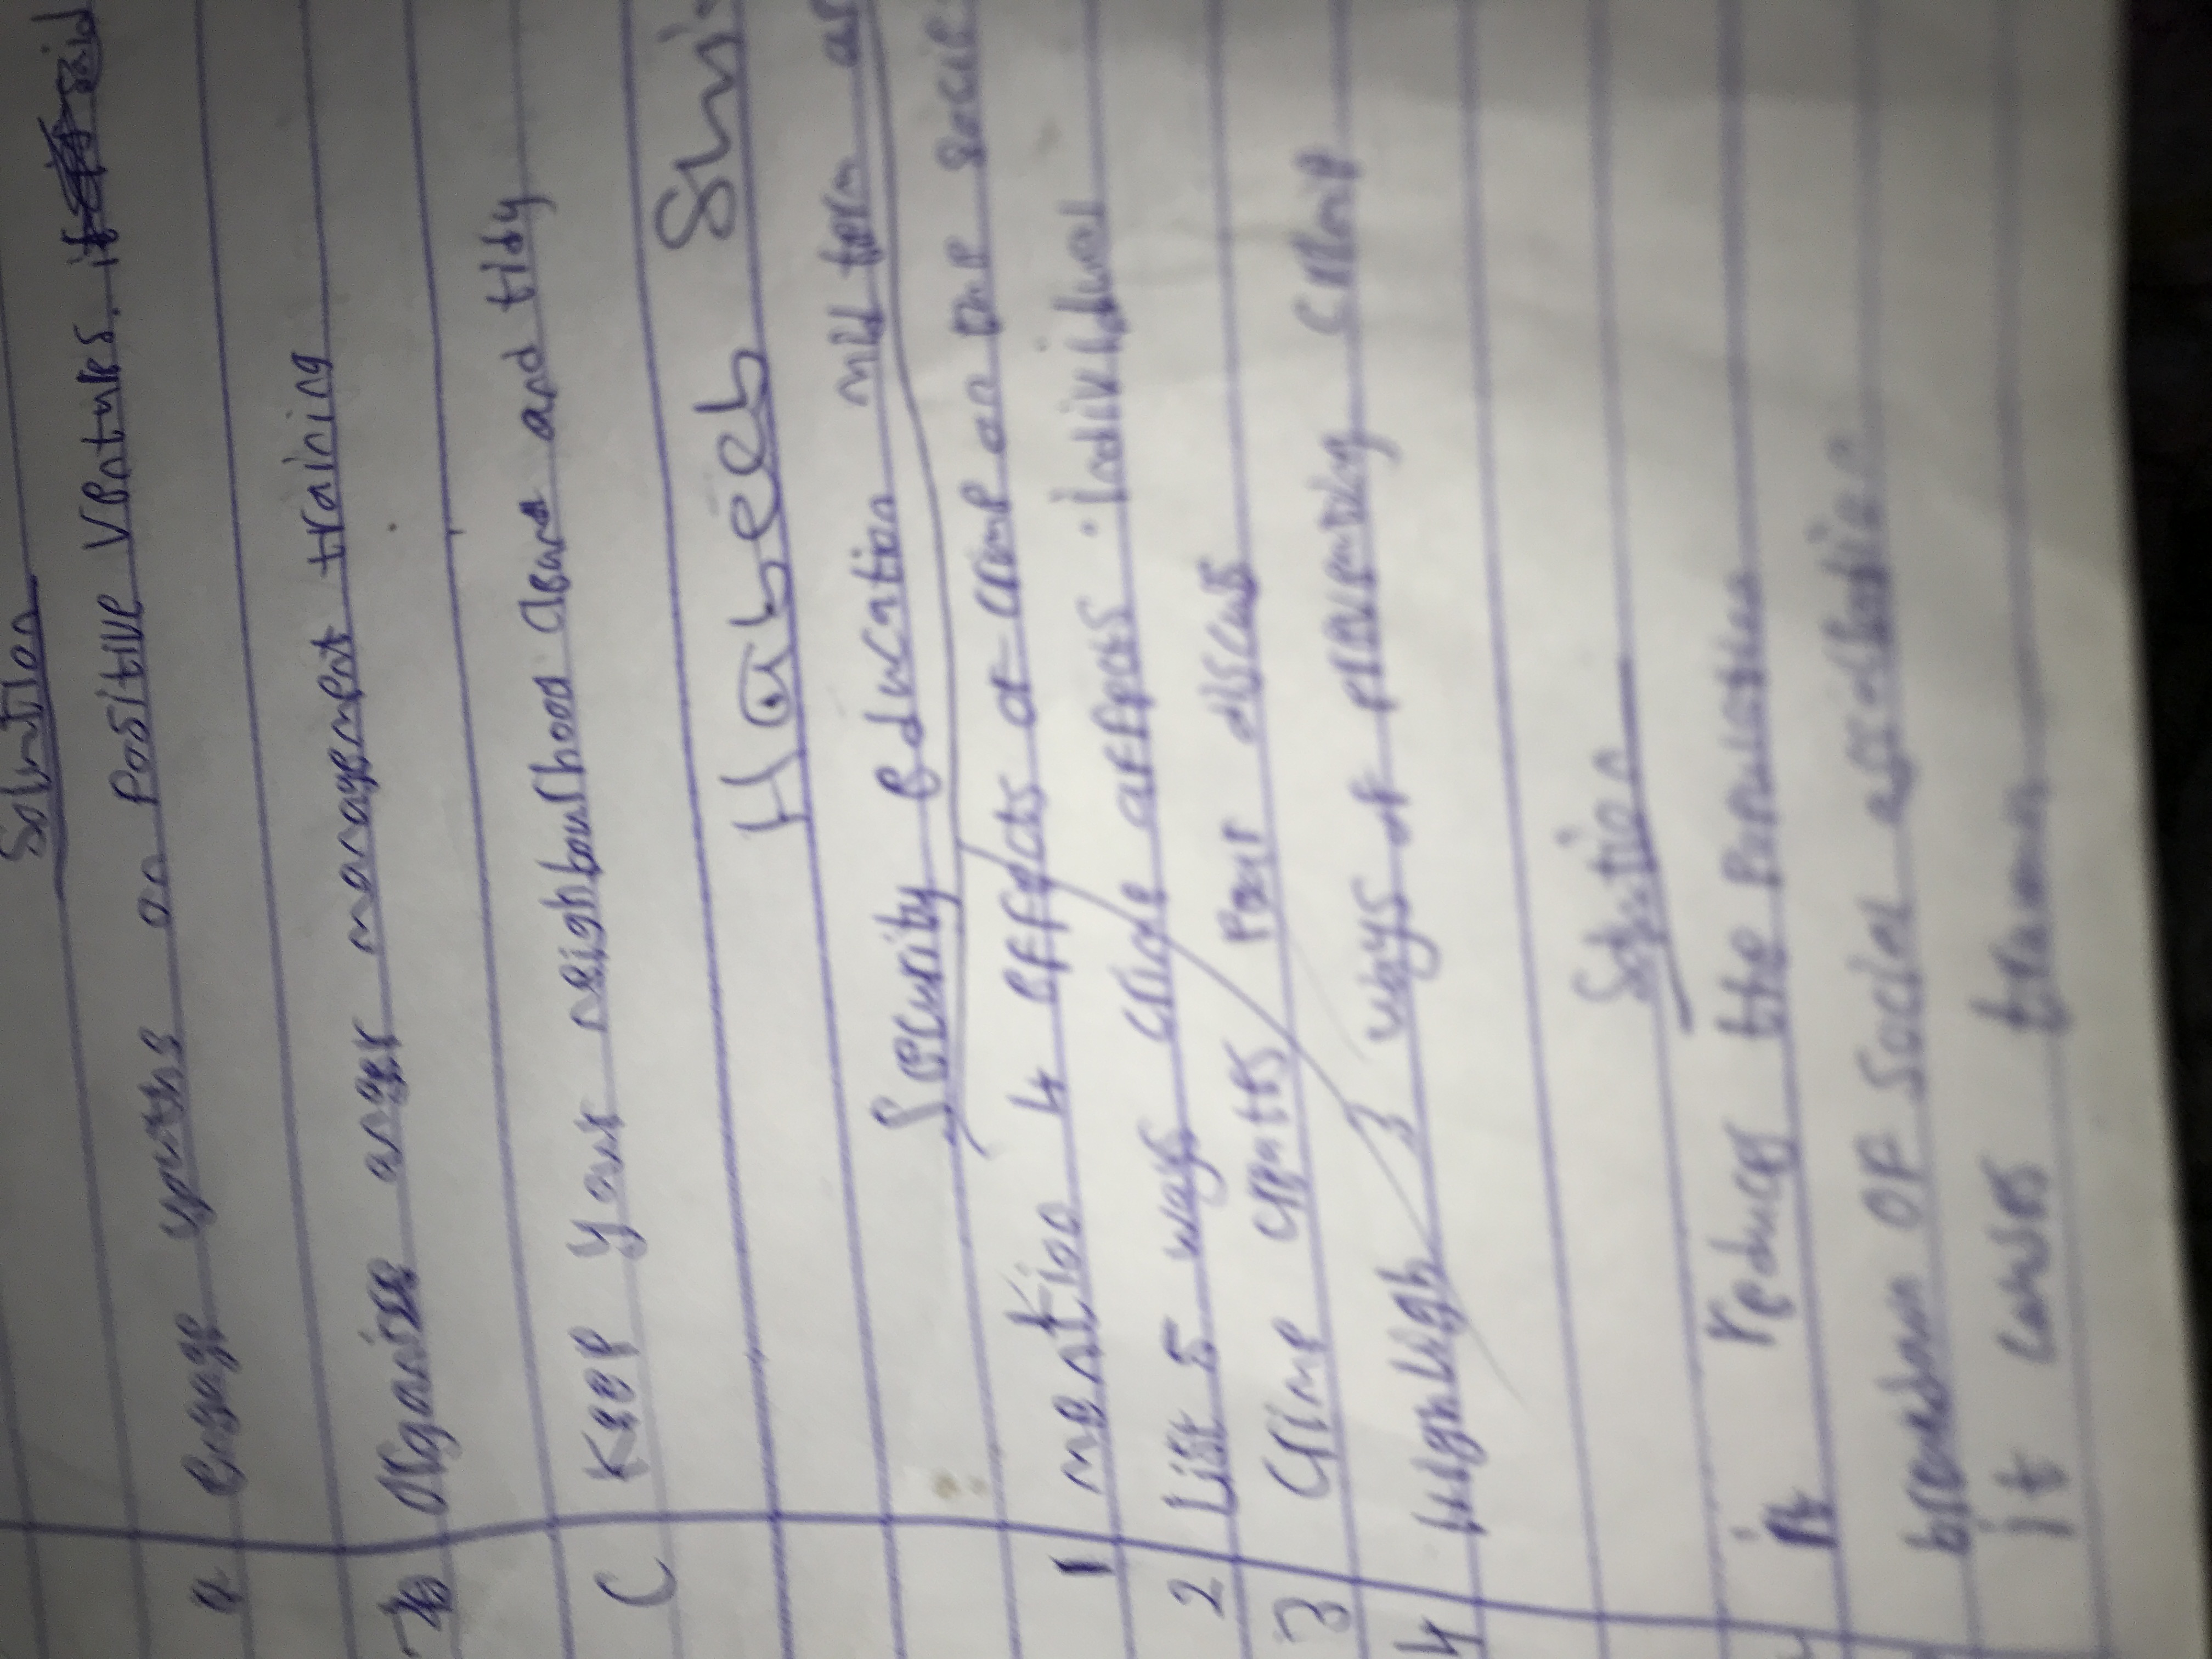 Solution
a engage youths on Positive Ventures.
b Organise anger management training
C Keep your neighbourhood clean and tidy
Habeeb Shi
Security Education mid term
1 mention 4 effects of crime on the socie
2 List 5 ways crime affects individual
3 Crime creates Fear discuss
4 highlight 3 ways of preventing crime
Solution
it reduces the Population
breakdown OF Social
it causes